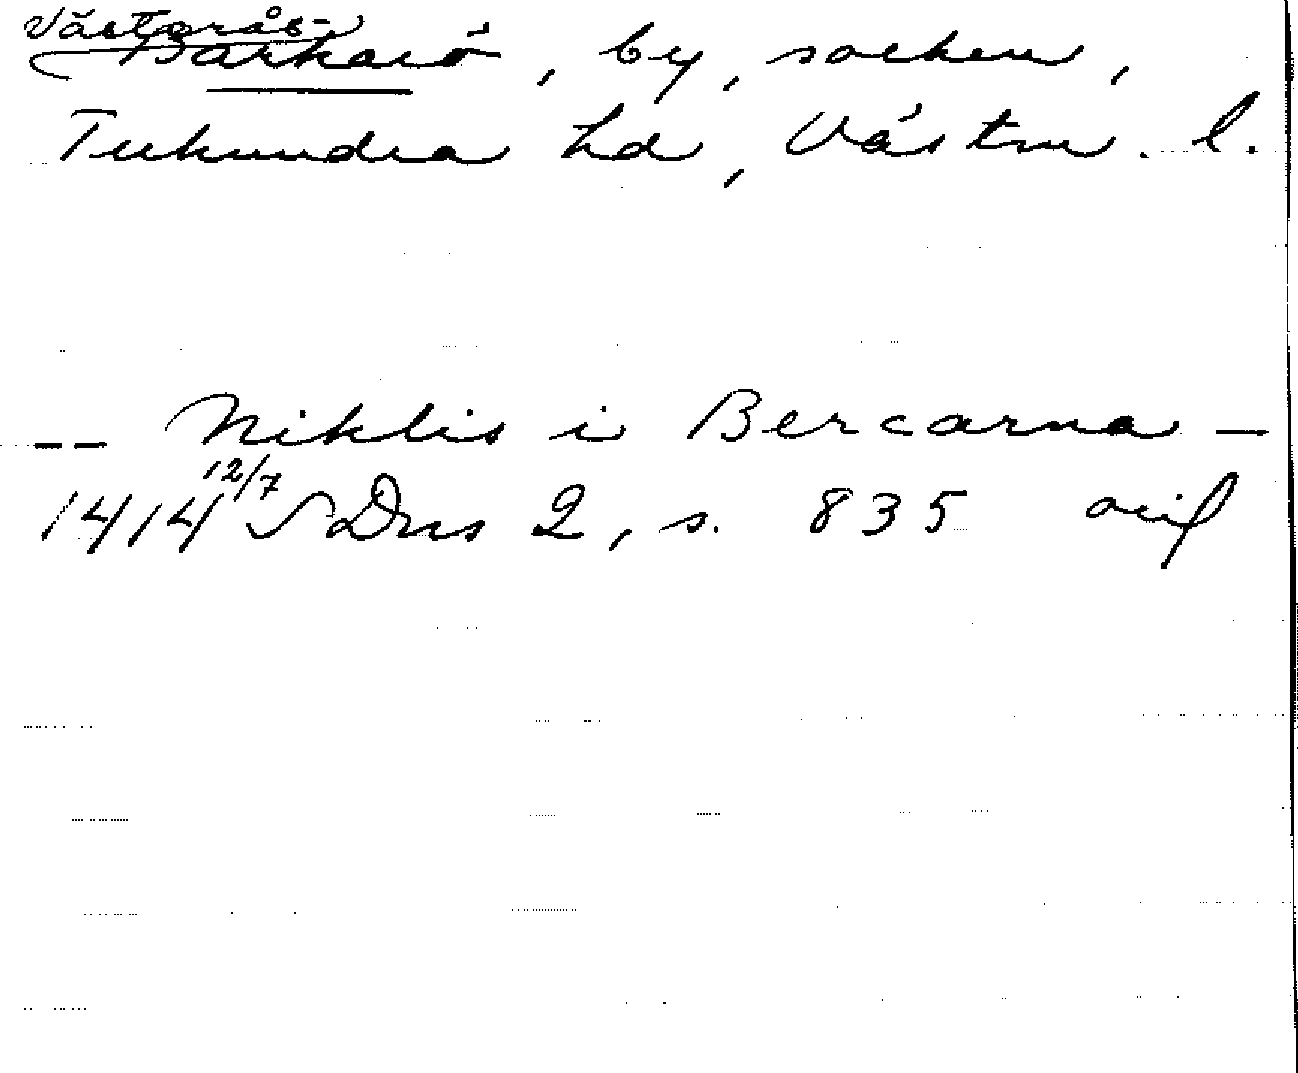 Västerås-
Barkarö, by, socken,
Tuhundra hd, Västm. l.
-- Niklis i Bercarna —
1414 12/7 SDns 2, s. 835 orif